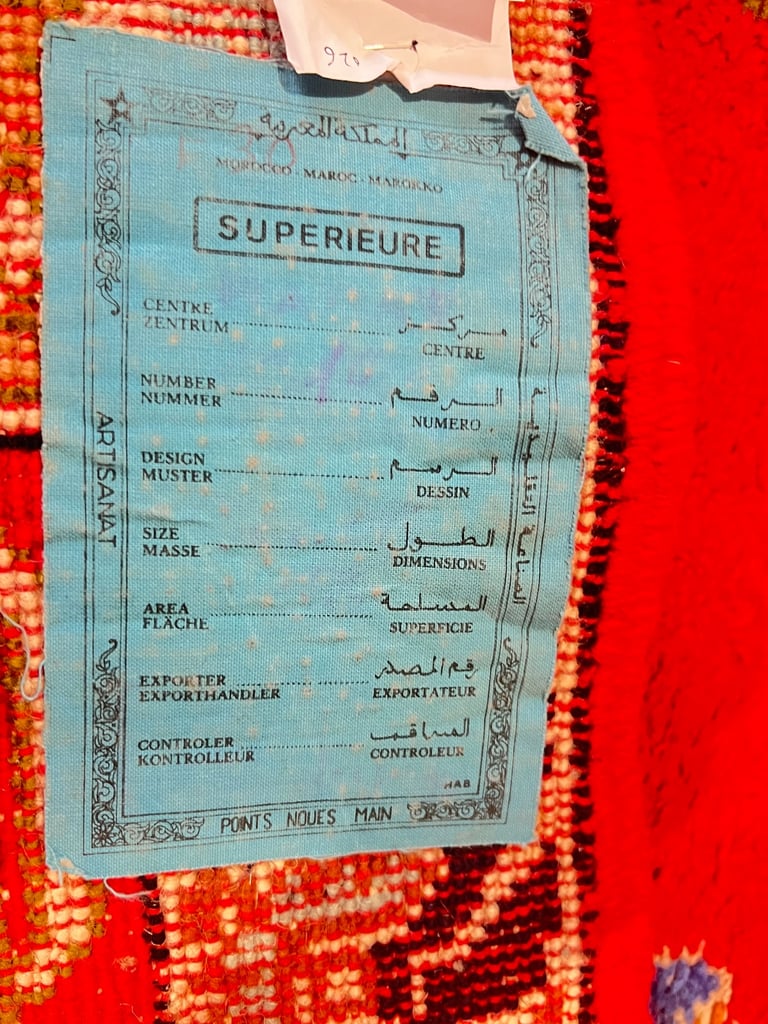 920
المملكة المغربية
MOROCCO - MAROC - MAROKKO
SUPERIEURE
CENTRE
ZENTRUM ........ مركز
CENTRE
NUMBER
NUMMER ........ الرقم
NUMERO
DESIGN
MUSTER ........ الرسم
DESSIN
SIZE
MASSE ........ الطول
DIMENSIONS
AREA
FLÄCHE ........ المساحة
SUPERFICIE
EXPORTER
EXPORTHANDLER ........ رقم المصدر
EXPORTATEUR
CONTROLER
KONTROLLEUR ........ المراقب
CONTROLEUR
HAB
POINTS NOUES MAIN
ARTISANAT
الصناعة التقليدية